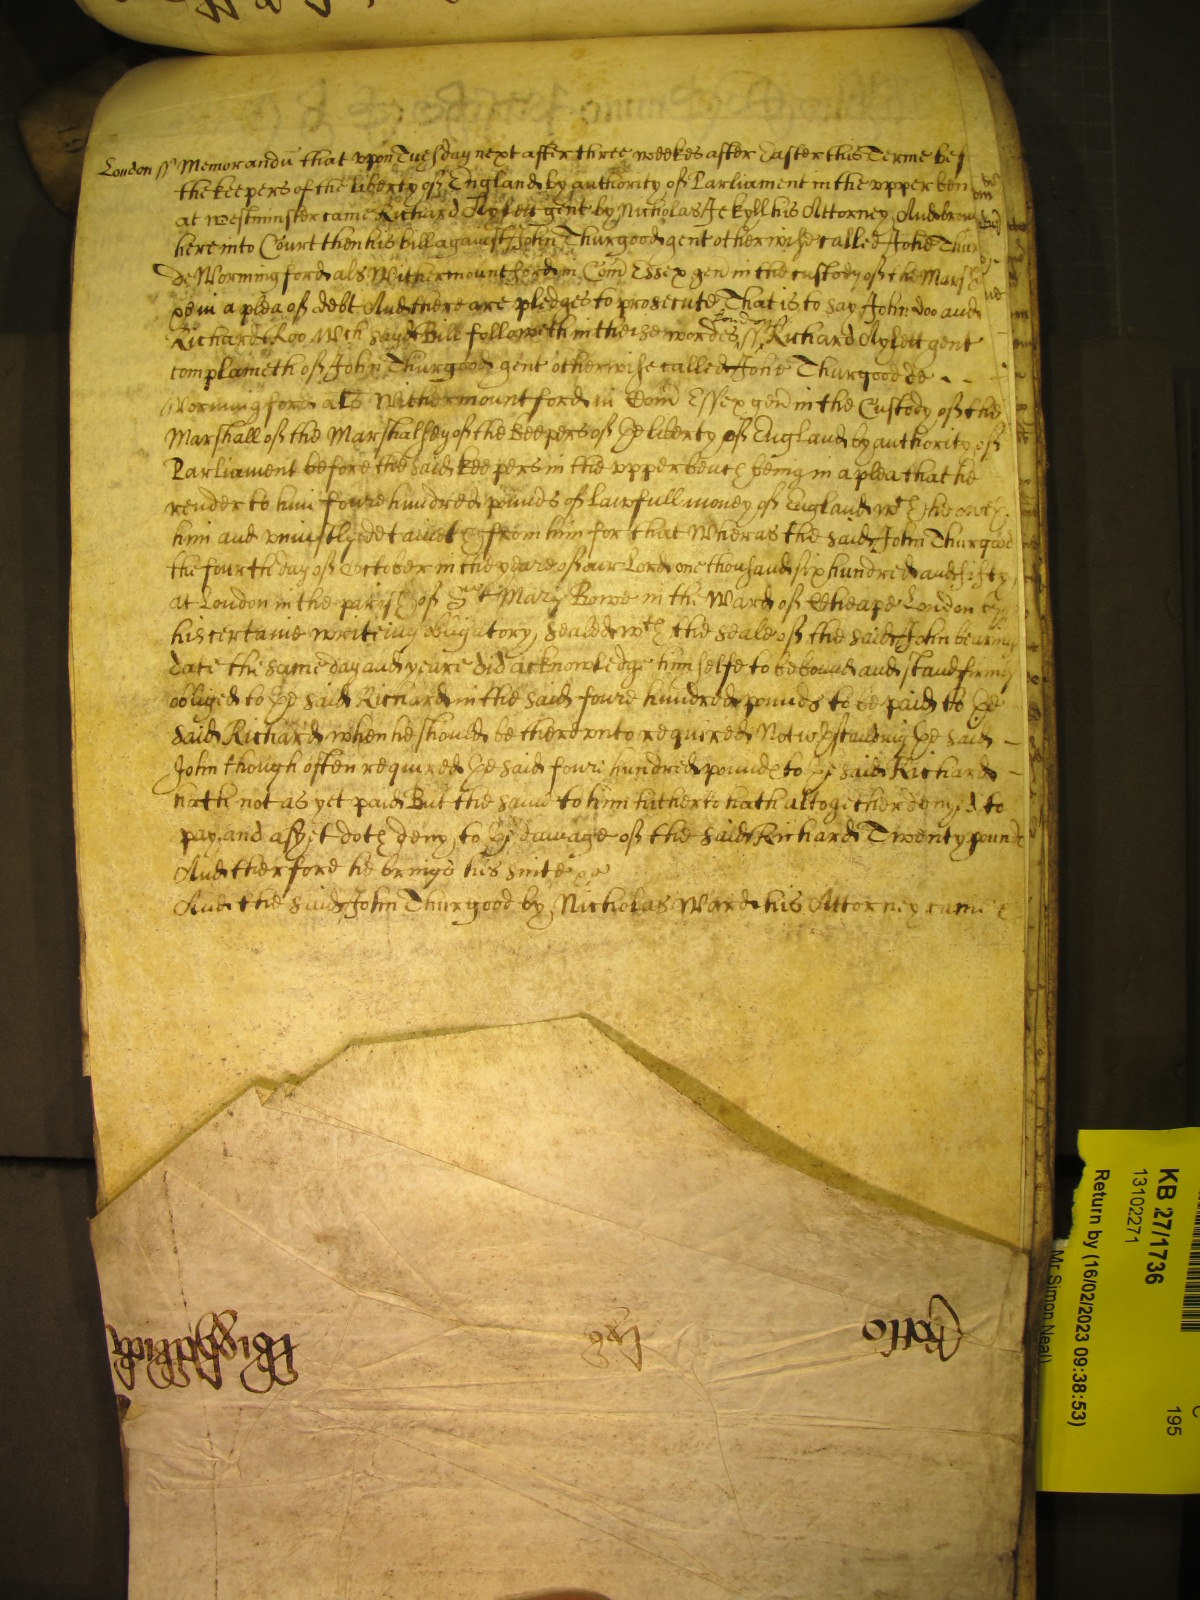 London ss Memorandū that vpon Tuesday next after three weekes after Easter this Terme bef
the keepers of the liberty of England by authority of Parliament in the vpper ben
at Westminster came Richard Aylett gent by Nicholas Jekyll his Attorney And brou
here into Court then his bill against John Thurgood gent otherwise called John Thur
De Wormingford als Withermountford in Com Essex gen in the custody of the Marsh
&c in a plea of debt And there are pledges to prosecute That is to say John Doo and
London
Richard Roo Wch said Bill followeth in theise wordes ss Richard Aylett gent
complaineth of John Thurgood gent otherwise called John Thurgood de
Wormingford als Withermountford in Com Essex gen in the Custody of the
Marshall of the Marshalsey of the Keepers of ye liberty of England by authority of
Parliament before the said keepers in the vpper bench being in a plea that he
render to him foure hundred pounds of lawfull money of England wch he oweth
him and vniustly detaineth from him for that Wheras the said John Thurgood
the fourth day of October in the yeare of our Lord one thousand six hundred and fifty
at London in the parish of Snt Mary Bowe in the Ward of Cheape London by
his certaine writeing obligatory, sealed wth the seale of the said John bearing
date the same day and yeare did acknowledge himselfe to be bound and stand firmly
obliged to ye said Richard in the said foure hundred pounds to be paid to ye
said Richard when he should be therevnto required Notwthstanding ye said
John though often required ye said foure hundred pounds to ye said Richard
hath not as yet paid But the same to him hitherto hath altogether denyed to
pay and as yet doth deny, to ye damage of the said Richard Twenty pound
And therfore he brings his suite &c
And the said John Thurgood by Nicholas Ward his Attorney came
KB 27/1736
13102271
Return by (16/02/2023 09:38:53)
Mr Simon Neal
195